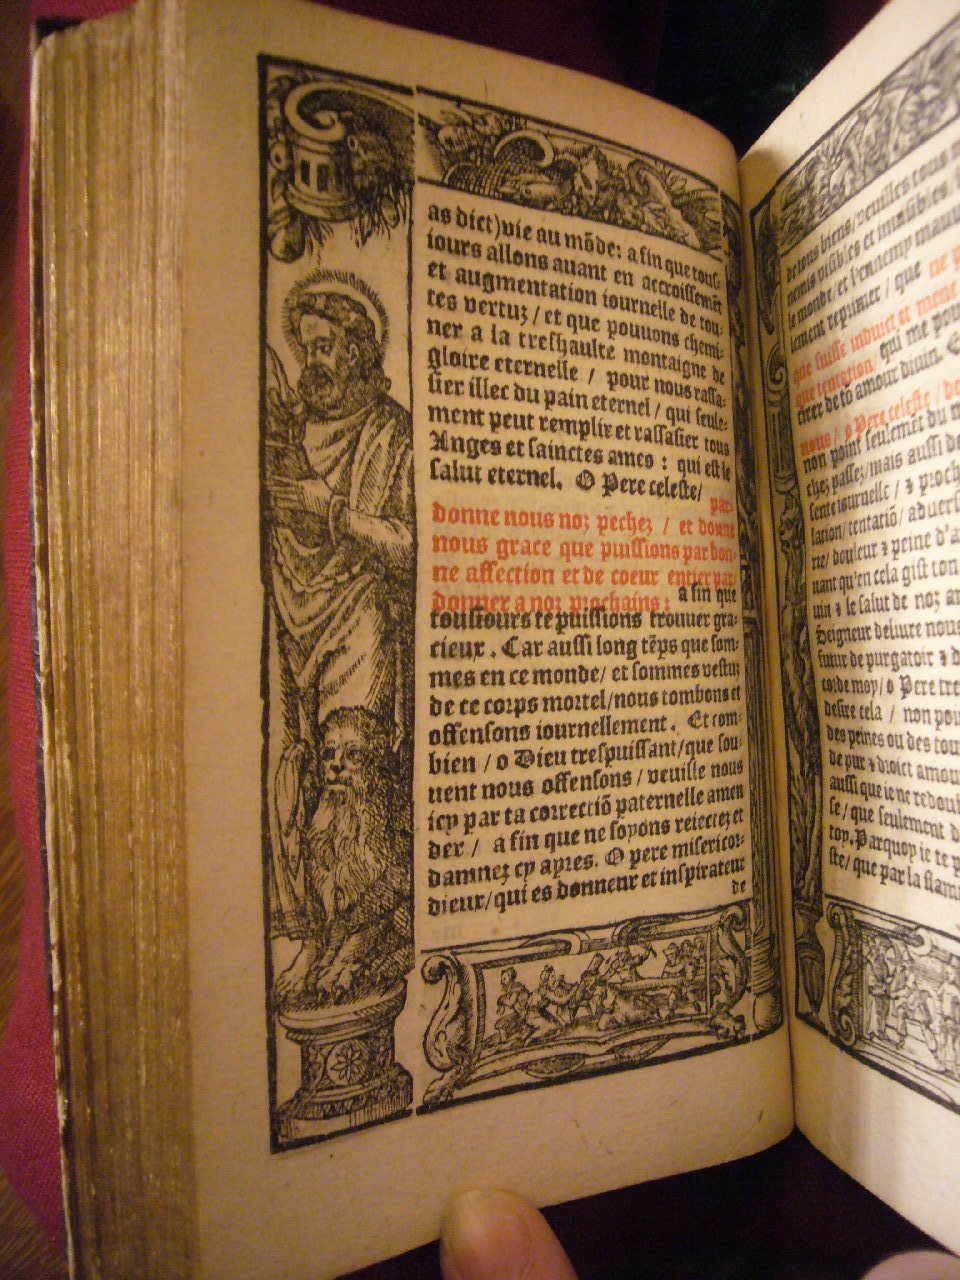 as dict)vie au mõde: a fin que tous-
iours allons auant en accroissemẽt
et augmentation iournelle de tou-
tes vertuz / et que pouuons chemi-
ner a la treshaulte montaigne de
gloire eternelle / pour nous rassa-
sier illec du pain eternel / qui seule-
ment peut remplir et rassasier tous
Anges et sainctes ames : qui est le
salut eternel. O Pere celeste/ par-
donne nous noz pechez / et donne
nous grace que puissions par bon-
ne affection et de coeur entier par-
donner a noz prochains : a fin que
tousiours te puissions trouuer gra-
cieux . Car aussi long tẽps que som-
mes en ce monde/ et sommes vestuz
de ce corps mortel/nous tombons et
offensons iournellement . Et com-
bien / o Dieu trespuissant/que sou-
uent nous offensons / veuille nous
icy par ta correctiõ paternelle amen
der / a fin que ne soyons reiectez et
damnez cy apres. O pere misericor-
dieux/qui es donneur et inspirateur
de
de tous biens/ veuilles tous
nemis visibles et inuisibles.
le monde/ et l'ennemy mauu
lement reprimer / que ne p
que fuisse induict et mene
que tentation/ qui me pou
tirer de tõ amour diuin.
nous / o Pere celeste / de
non point seulemẽt du m
chez passez/mais aussi de
sente iournelle / ⁊ proch
lation/tentatiõ/ aduers
rie/ douleur ⁊ peine d'a
uant qu'en cela gist ton
uin ⁊ le salut de noz am
Seigneur deliure nous
futur de purgatoir ⁊ d
corde moy/o Pere tre
desire cela / non pou
des peines ou des tou
de pur ⁊ droict amou
aussi que ie ne redoub
se/ que seulement d
toy. Parquoy ie te p
ste/ que par la flam